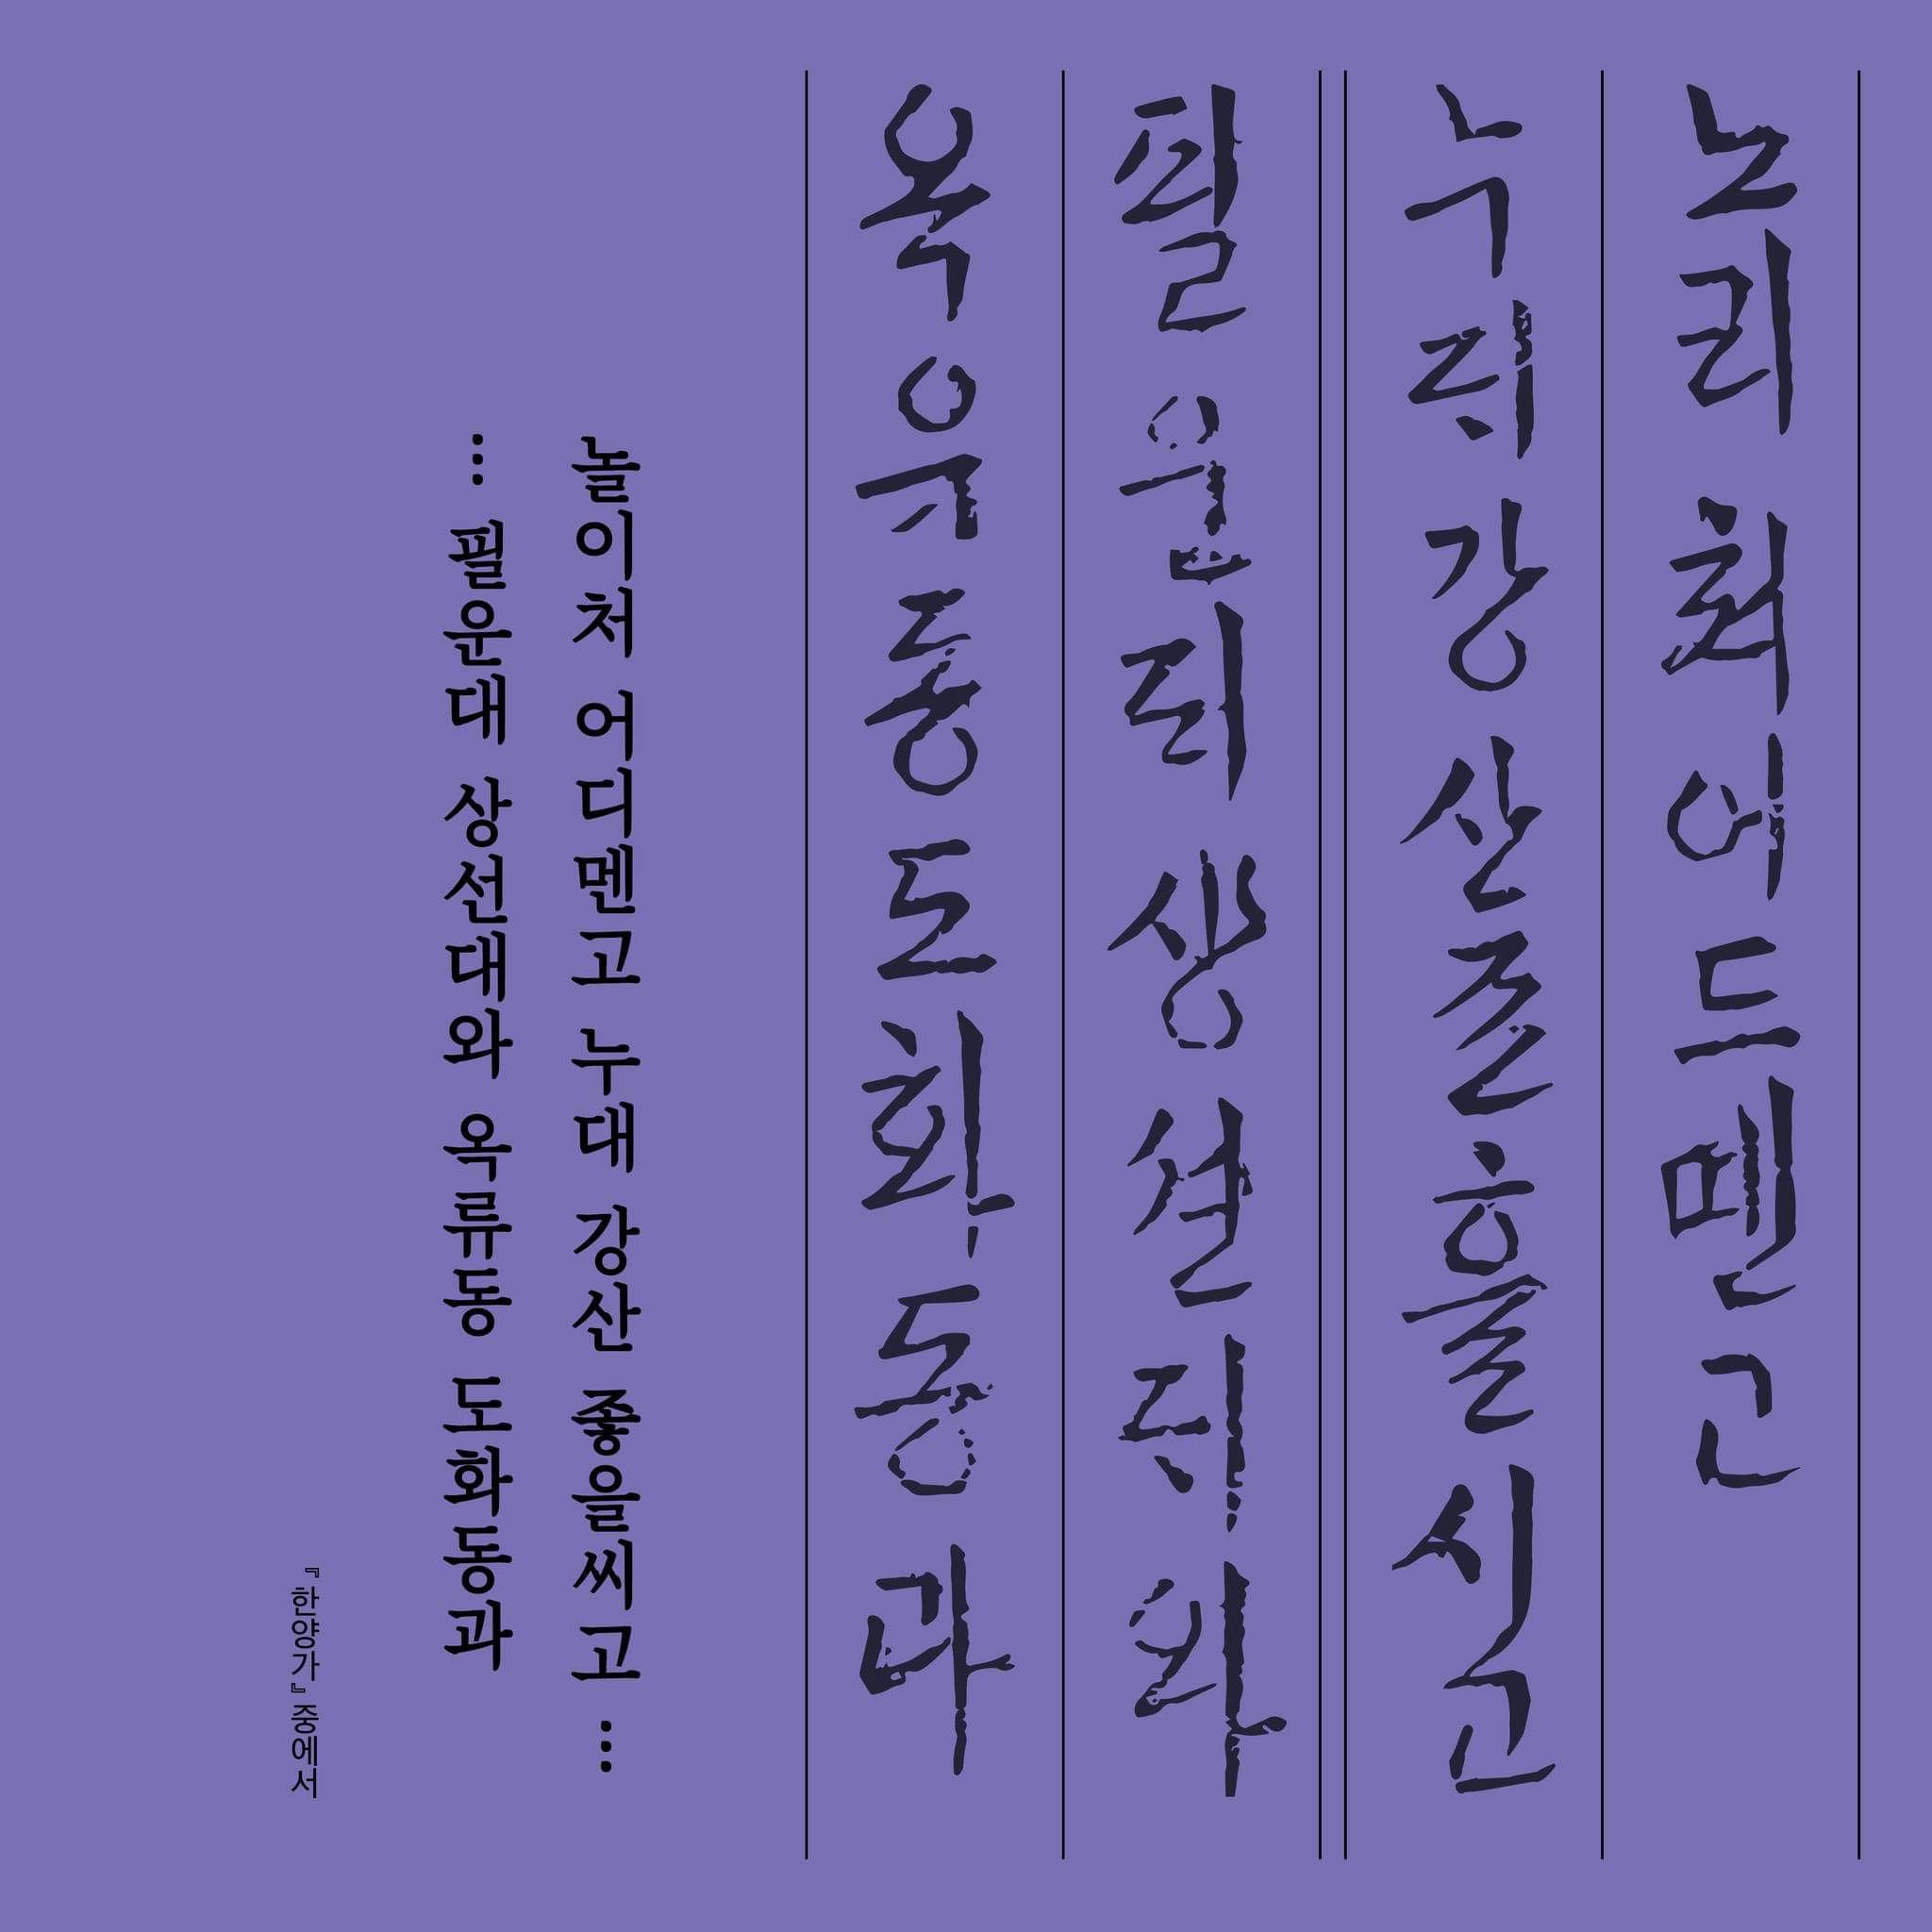 노리쳐어드멘고
누ᄃᆡ강산죠흘시고
필운ᄃᆡ상션ᄃᆡ와
옥유동도화동과
놀이처 어디멘고 누대 강산 좋을씨고 …
… 필운대 상선대와 옥류동 도화동과
『한양가』 중에서